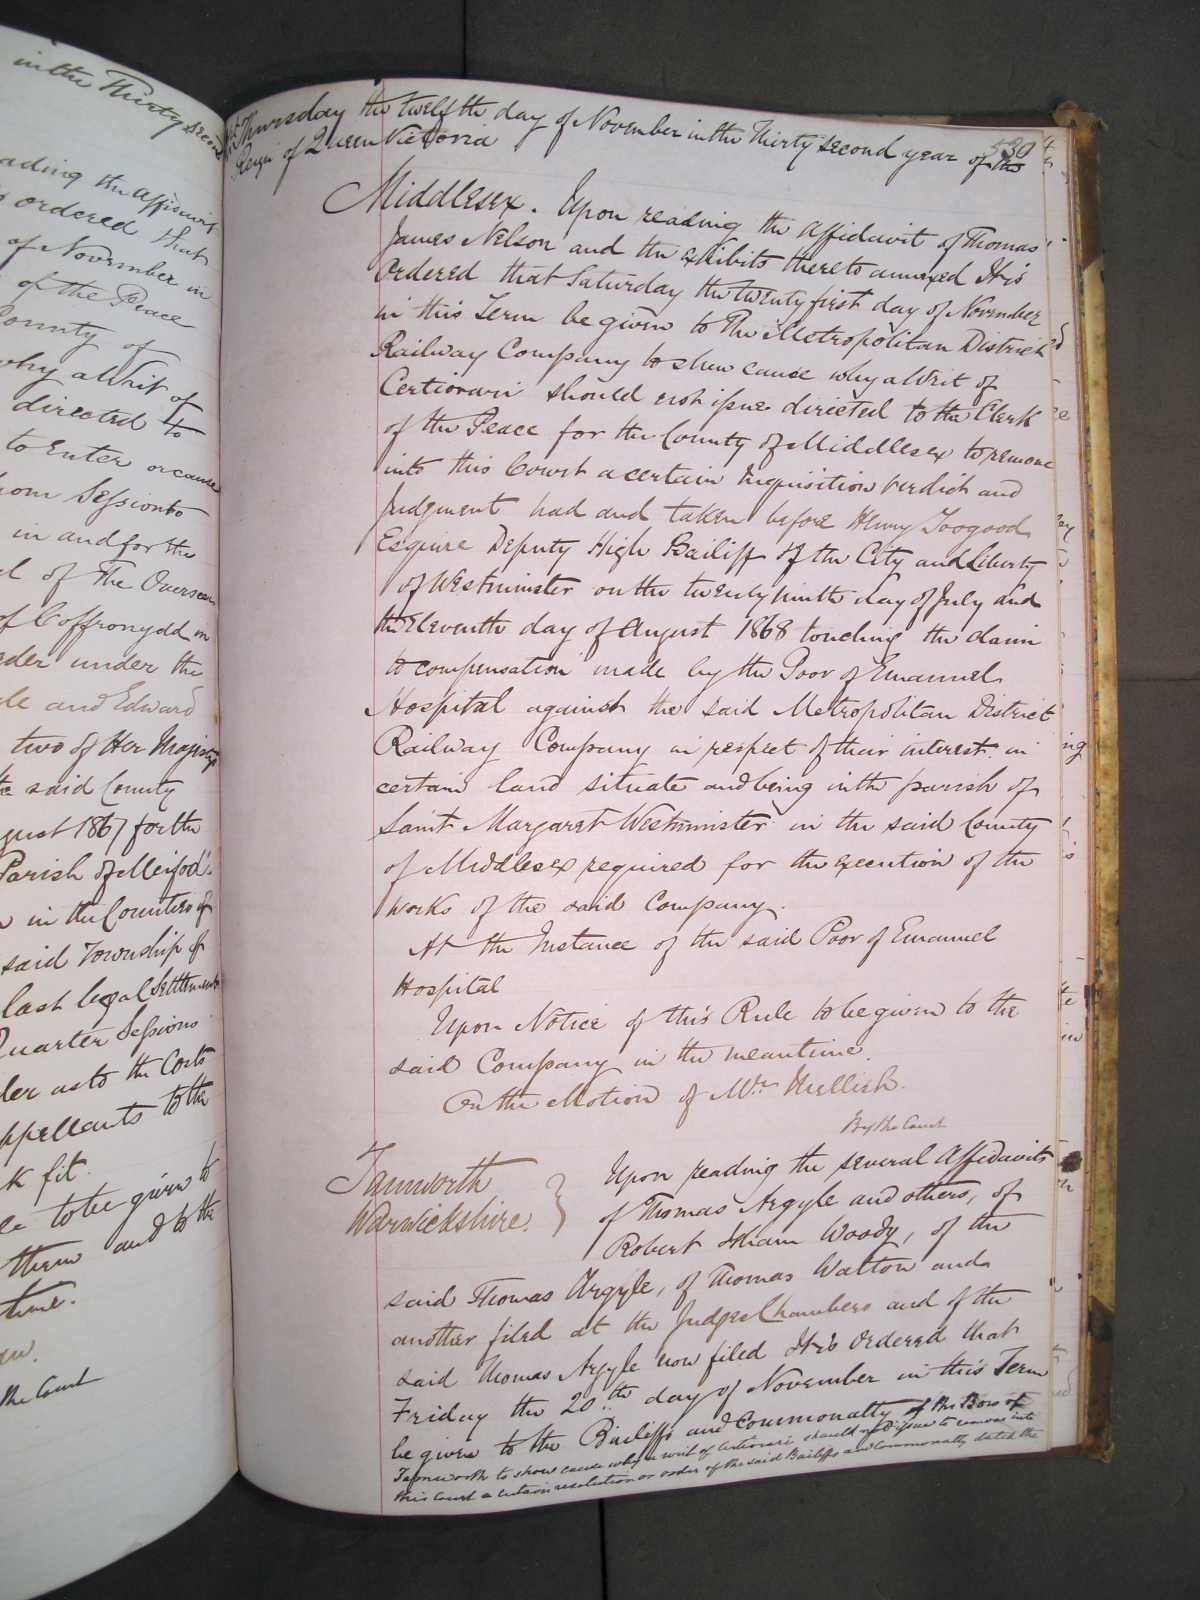 in the Thirty secon
ading the affidavit
ordered that
of November in
of the Peace
County of
why a Writ of
directed to
to Enter or cause
from Session to
in and for the
l of The Overseers
of Coffronydd in
rder under the
le and Edward
two of Her Majestys
the said County
gust 1867 for the
Parish of Meifod
in the Counties of
said Township of
last legal Settlement
Quarter Sessions
der as to the Costs
ppellants to the
k fit.
le to be given to
them and to the
time.
the Court
Thursday the twelfth day of November in the Thirty second year of the
Reign of Queen Victoria
530
Middlesex. Upon reading the affidavit of Thomas
James Nelson and the exhibits thereto annexed It is
Ordered that Saturday the twenty first day of November
in this Term be given to The Metropolitan District
Railway Company to shew cause why a Writ of
Certiorari should not issue directed to the Clerk
of the Peace for the County of Middlesex to remove
into this Court a certain Inquisition verdict and
Judgment had and taken before Henry Toogood
Esquire Deputy High Bailiff of the City and Liberty
of Westminster on the twenty ninth day of July and
the Eleventh day of August 1868 touching the claim
to compensation made by the Poor of Emanuel
Hospital against the said Metropolitan District
Railway Company in respect of their interest in
certain land situate and being in the parish of
Saint Margaret Westminster in the said County
of Middlesex required for the execution of the
works of the said Company.
At the Instance of the said Poor of Emanuel
Hospital
Upon Notice of this Rule to be given to the
said Company in the meantime.
On the Motion of Mr. Mellish.
By the Court
Tamworth
Warwickshire. }
Upon reading the several Affidavits
of Thomas Argyle and others, of
Robert Isham Woody, of the
said Thomas Argyle, of Thomas Watton and
another filed at the Judges Chambers and of the
said Thomas Argyle now filed It is Ordered that
Friday the 20th day of November in this Term
be given to the Bailiffs and Commonalty of the Boro of
Tamworth to show cause why a writ of certiorari should not issue to remove into
this Court a certain resolution or order of the said Bailiffs and Commonalty dated the